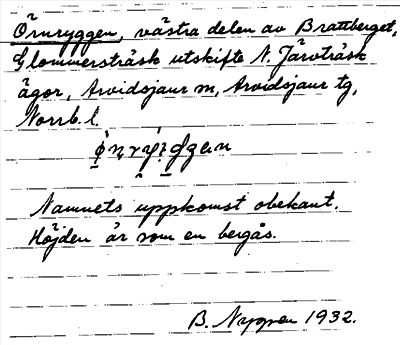 Örnryggen, västra delen av Brattberget,
Glommersträsk utskifte N. Järvträsk
ägor, Arvidsjaur m, Arvidsjaur tg,
Norrb. l.
Namnets uppkomst obekant.
Höjden är som en bergås.
B. 1932.